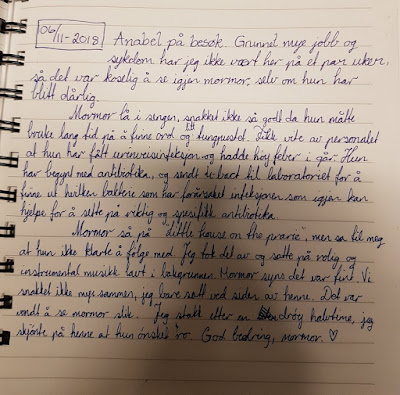 06/11-2018 Anabel på besøk. Grunnet mye jobb og
sykdom har jeg ikke vært her på et par uker,
så det var koselig å se igjen mormor, selv om hun har
blitt dårlig.
Mormor lå i sengen, snakket ikke så godt da hun måtte
bruke lang tid på å finne ord og litt tungpustet. Fikk vite av personalet
at hun har fått urinveisinfeksjon og hadde høy feber i går. Hun
har begynt med antibiotika, og sendt til laboratoriet for å
finne ut hvilken bakterie som har forårsaket infeksjonen som igjen kan
hjelpe for å sette på riktig og spesifikk antibiotika.
Mormor så på "little house on the prairie", men sa til meg
at hun ikke klarte å følge med. Jeg tok det av og satte på rolig og
instrumental musikk lavt i bakgrunnen. Mormor syns det var fint. Vi
snakket ikke mye sammen, jeg bare satt ved siden av henne. Det var
vondt å se mormor slik. Jeg stakk etter en drøy halvtime, jeg
skjønte på henne at hun ønsket ro. God bedring, mormor. ♡